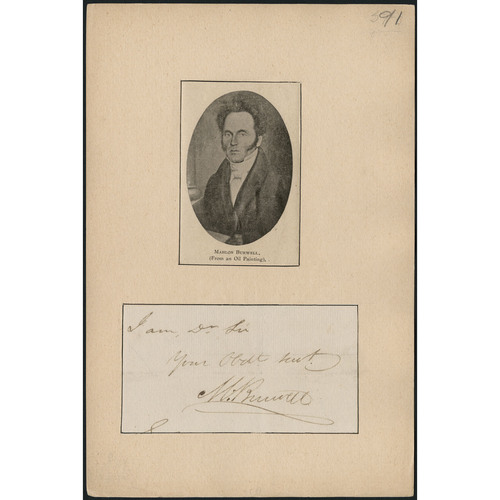 291
MAHLON BURWELL.
(From an Oil Painting).
I am, Dr Sir
Your Obdt Servt.
M. Burwell